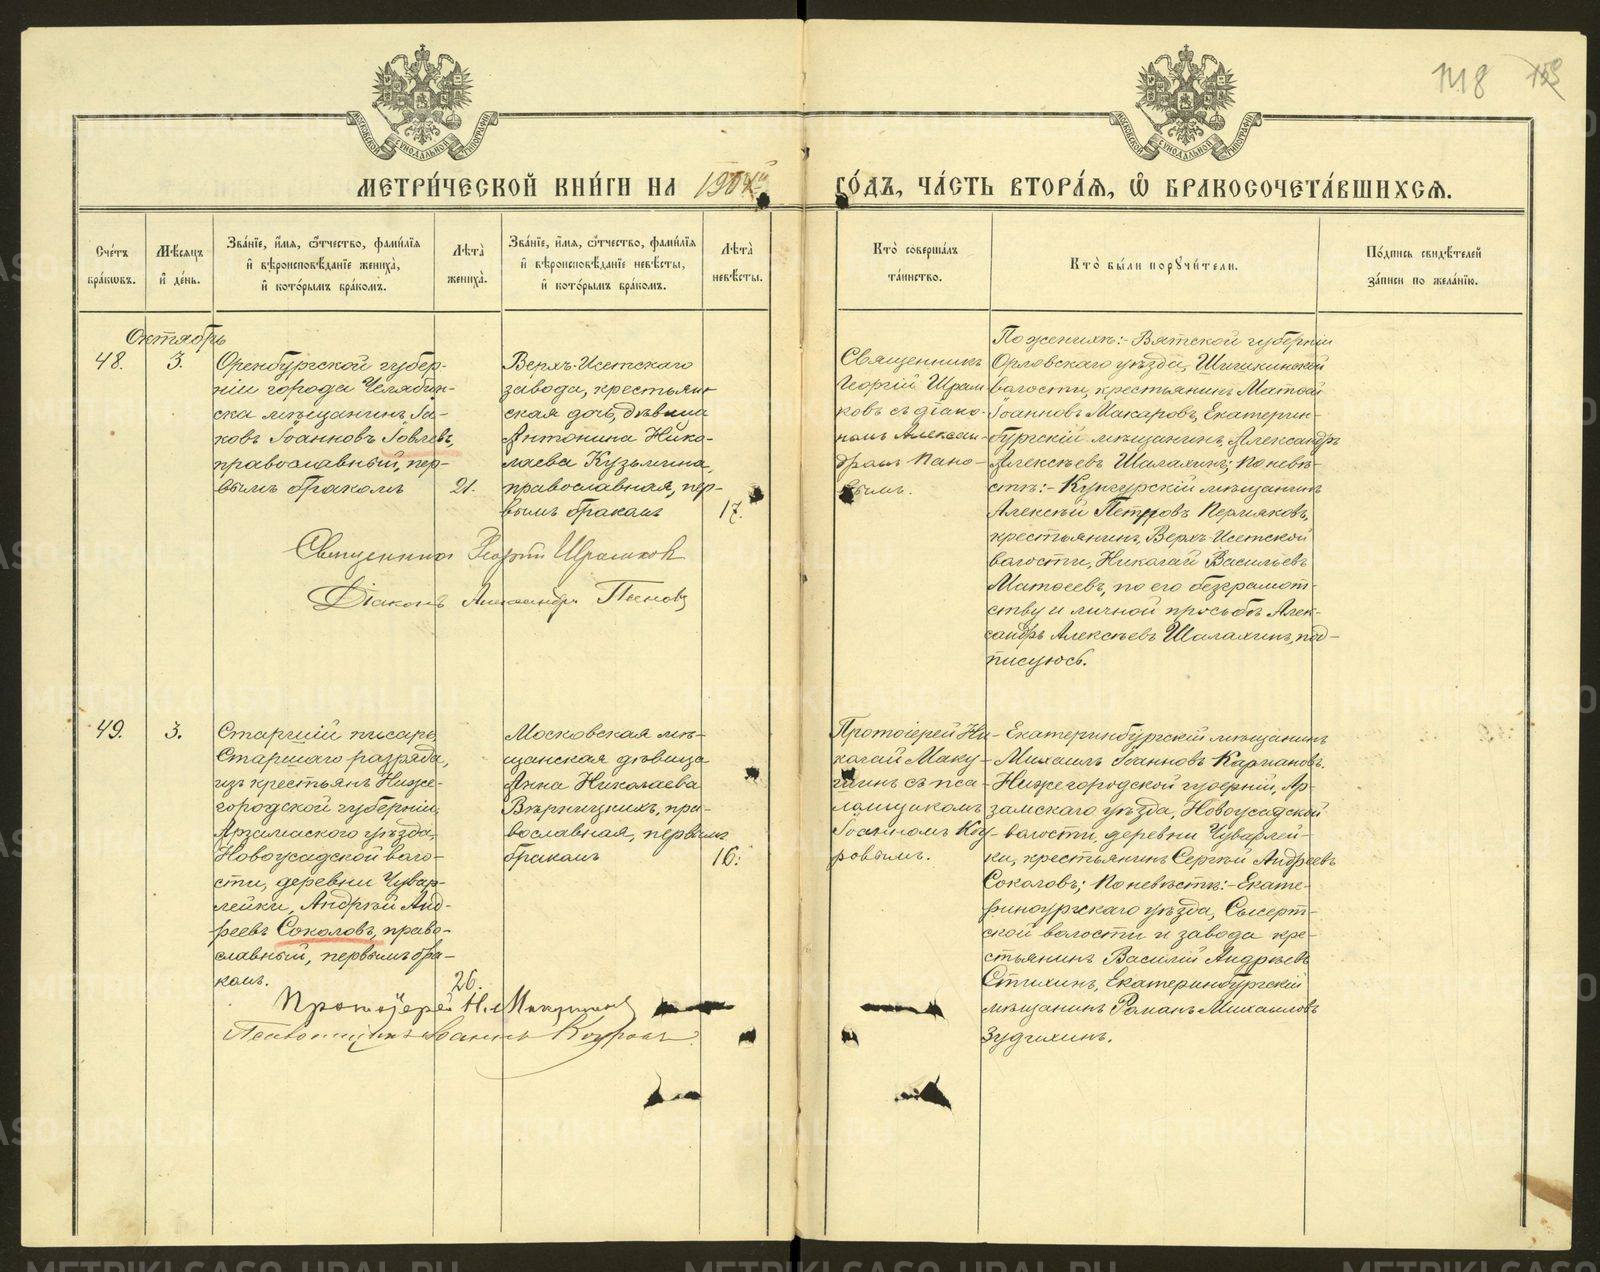 1118 159
МОСКОВСКОЙ СѴНОДАЛЬНОЙ ТИПОГРАФІИ
МОСКОВСКОЙ СѴНОДАЛЬНОЙ ТИПОГРАФІИ
МЕТРИ́ЧЕСКОЙ КНИ́ГИ НА 1904й
ГО́ДЪ, ЧА́СТЬ ВТОРА́Ѧ, Ѽ БРАКОСОЧЕТА́ВШИХСѦ.
Счетъ
браковъ.
Мѣсяцъ
и день.
Званіе, имя, отчество, фамилія
и вѣроисповѣданіе жениха,
и которымъ бракомъ.
Лѣта
жениха.
Званіе, имя, отчество, фамилія
и вѣроисповѣданіе невѣсты,
и которымъ бракомъ.
Лѣта
невѣсты.
Кто совершалъ
таинство.
Кто были поручители.
Подпись свидѣтелей
записи по желанію.
Октябрь
48.
3.
Оренбургской губер-
ніи города Челябин-
ска мѣщанинъ Іа-
ковъ Іоанновъ Іовлевъ,
православный, пер-
вымъ бракомъ
21.
Верхъ-Исетскаго
завода, крестьян-
ская дочь, дѣвица
Антонина Нико-
лаева Кузьмина,
православная, пер-
вымъ бракомъ
17.
Священникъ
Георгій Шрам-
ковъ съ діако-
номъ Алексан-
дромъ Пано-
вымъ.
По женихѣ:- Вятской губерніи
Орловскаго уѣзда, Шигикинской
волости, крестьянинъ Матѳей
Іоанновъ Макаровъ, Екатерин-
бургскій мѣщанинъ, Александръ
Алексѣевъ Шалахинъ; по невѣ-
стѣ:- Кунгурскій мѣщанинъ
Алексѣй Петровъ Пермяковъ,
крестьянинъ, Верхъ-Исетской
волости, Николай Васильевъ
Матвеевъ, по его безграмот-
ству и личной просьбѣ Алек-
сандръ Алексѣевъ Шалахинъ, под-
писуюсь.
Священникъ Георгій Шрамков
Діаконъ Александръ Пановъ
49.
3.
Старшій писарь,
Старшаго разряда,
изъ крестьянъ Ниже-
городской губерніи,
Арзамаскаго уѣзда,
Новоусадской воло-
сти, деревни Чувар-
лейки, Андрѣй Анд-
реевъ Соколовъ, право-
славный, первымъ бра-
комъ.
26.
Московская мѣ-
щанская дѣвица
Анна Николаева
Вѣрницкихъ, пра-
вославная, первымъ
бракомъ
16.
Протоіерей Ни-
колай Маку-
шинъ съ пса-
ломщикомъ
Іоанномъ Коу-
ровымъ.
Екатеринбургскій мѣщанинъ
Михаилъ Іоанновъ Каргановъ.
Нижегородской губерній, Ар-
замскаго уѣзда, Новоусадской
волости, деревни Чуварлей-
ки, крестьянинъ Сергѣй Андреевъ
Соколовъ; по невѣстѣ:- Екате-
ринбургскаго уѣзда, Сысерт-
ской волости и завода кре-
стьянинъ Василій Андреевъ
Стихинъ, Екатеринбургскій
мѣщанинъ Романъ Михаиловъ
Зудихинъ.
Протоіерей Н. Макушинъ
Псаломщикъ Іоаннъ Коуровъ
METRIKI.GASO-URAL.RU